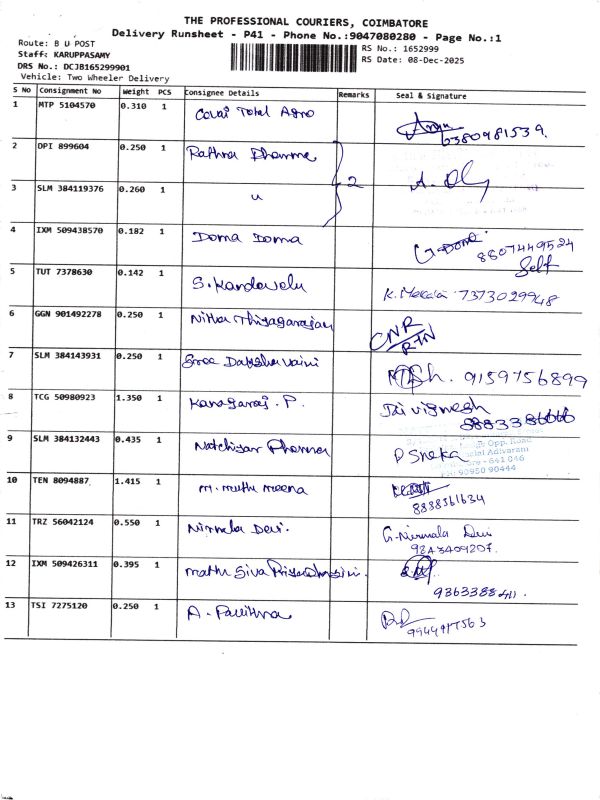 THE PROFESSIONAL COURIERS, COIMBATORE
Delivery Runsheet - P41 - Phone No.:9047080280 - Page No.:1
Route: B U POST
Staff: KARUPPASAMY
DRS No.: DCJB165299901
Vehicle: Two Wheeler Delivery
RS No.: 1652999
RS Date: 08-Dec-2025
S No Consignment No Weight PCS Consignee Details Remarks Seal & Signature
1 MTP 5104570 0.310 1 Covai Total Agro
6380981539
2 DPI 899604 0.250 1 Rathna Pharma 2
3 SLM 384119376 0.260 1 u
4 IXM 509438570 0.182 1 Doma Doma
8807449524
Self
5 TUT 7378630 0.142 1 S. Kandavelu K. 7373029948
6 GGN 901492278 0.250 1 Nitha Thiyagarajan CNR/RTN
7 SLM 384143931 0.250 1 Sree 9159756899
8 TCG 50980923 1.350 1 Kanagaraj. P. Jai vignesh
9 SLM 384132443 0.435 1 Natchiyar Pharma P Sneka
Opp. Road
Adivaram
- 641 046
90950 90444
10 TEN 8094887 1.415 1 M. Muthu Meena
8838561634
11 TRZ 56042124 0.550 1 Nirmala Devi. G. Nirmala Devi
9243409207.
12 IXM 509426311 0.395 1 Mathi Siva
13 TSI 7275120 0.250 1 A. Pavithra